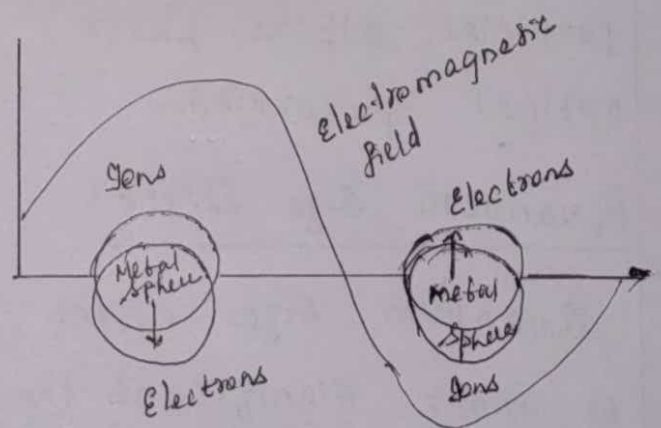 Electromagnetic
field
Ions
Metal
Sphere
Electrons
Electrons
Metal
Sphere
Ions